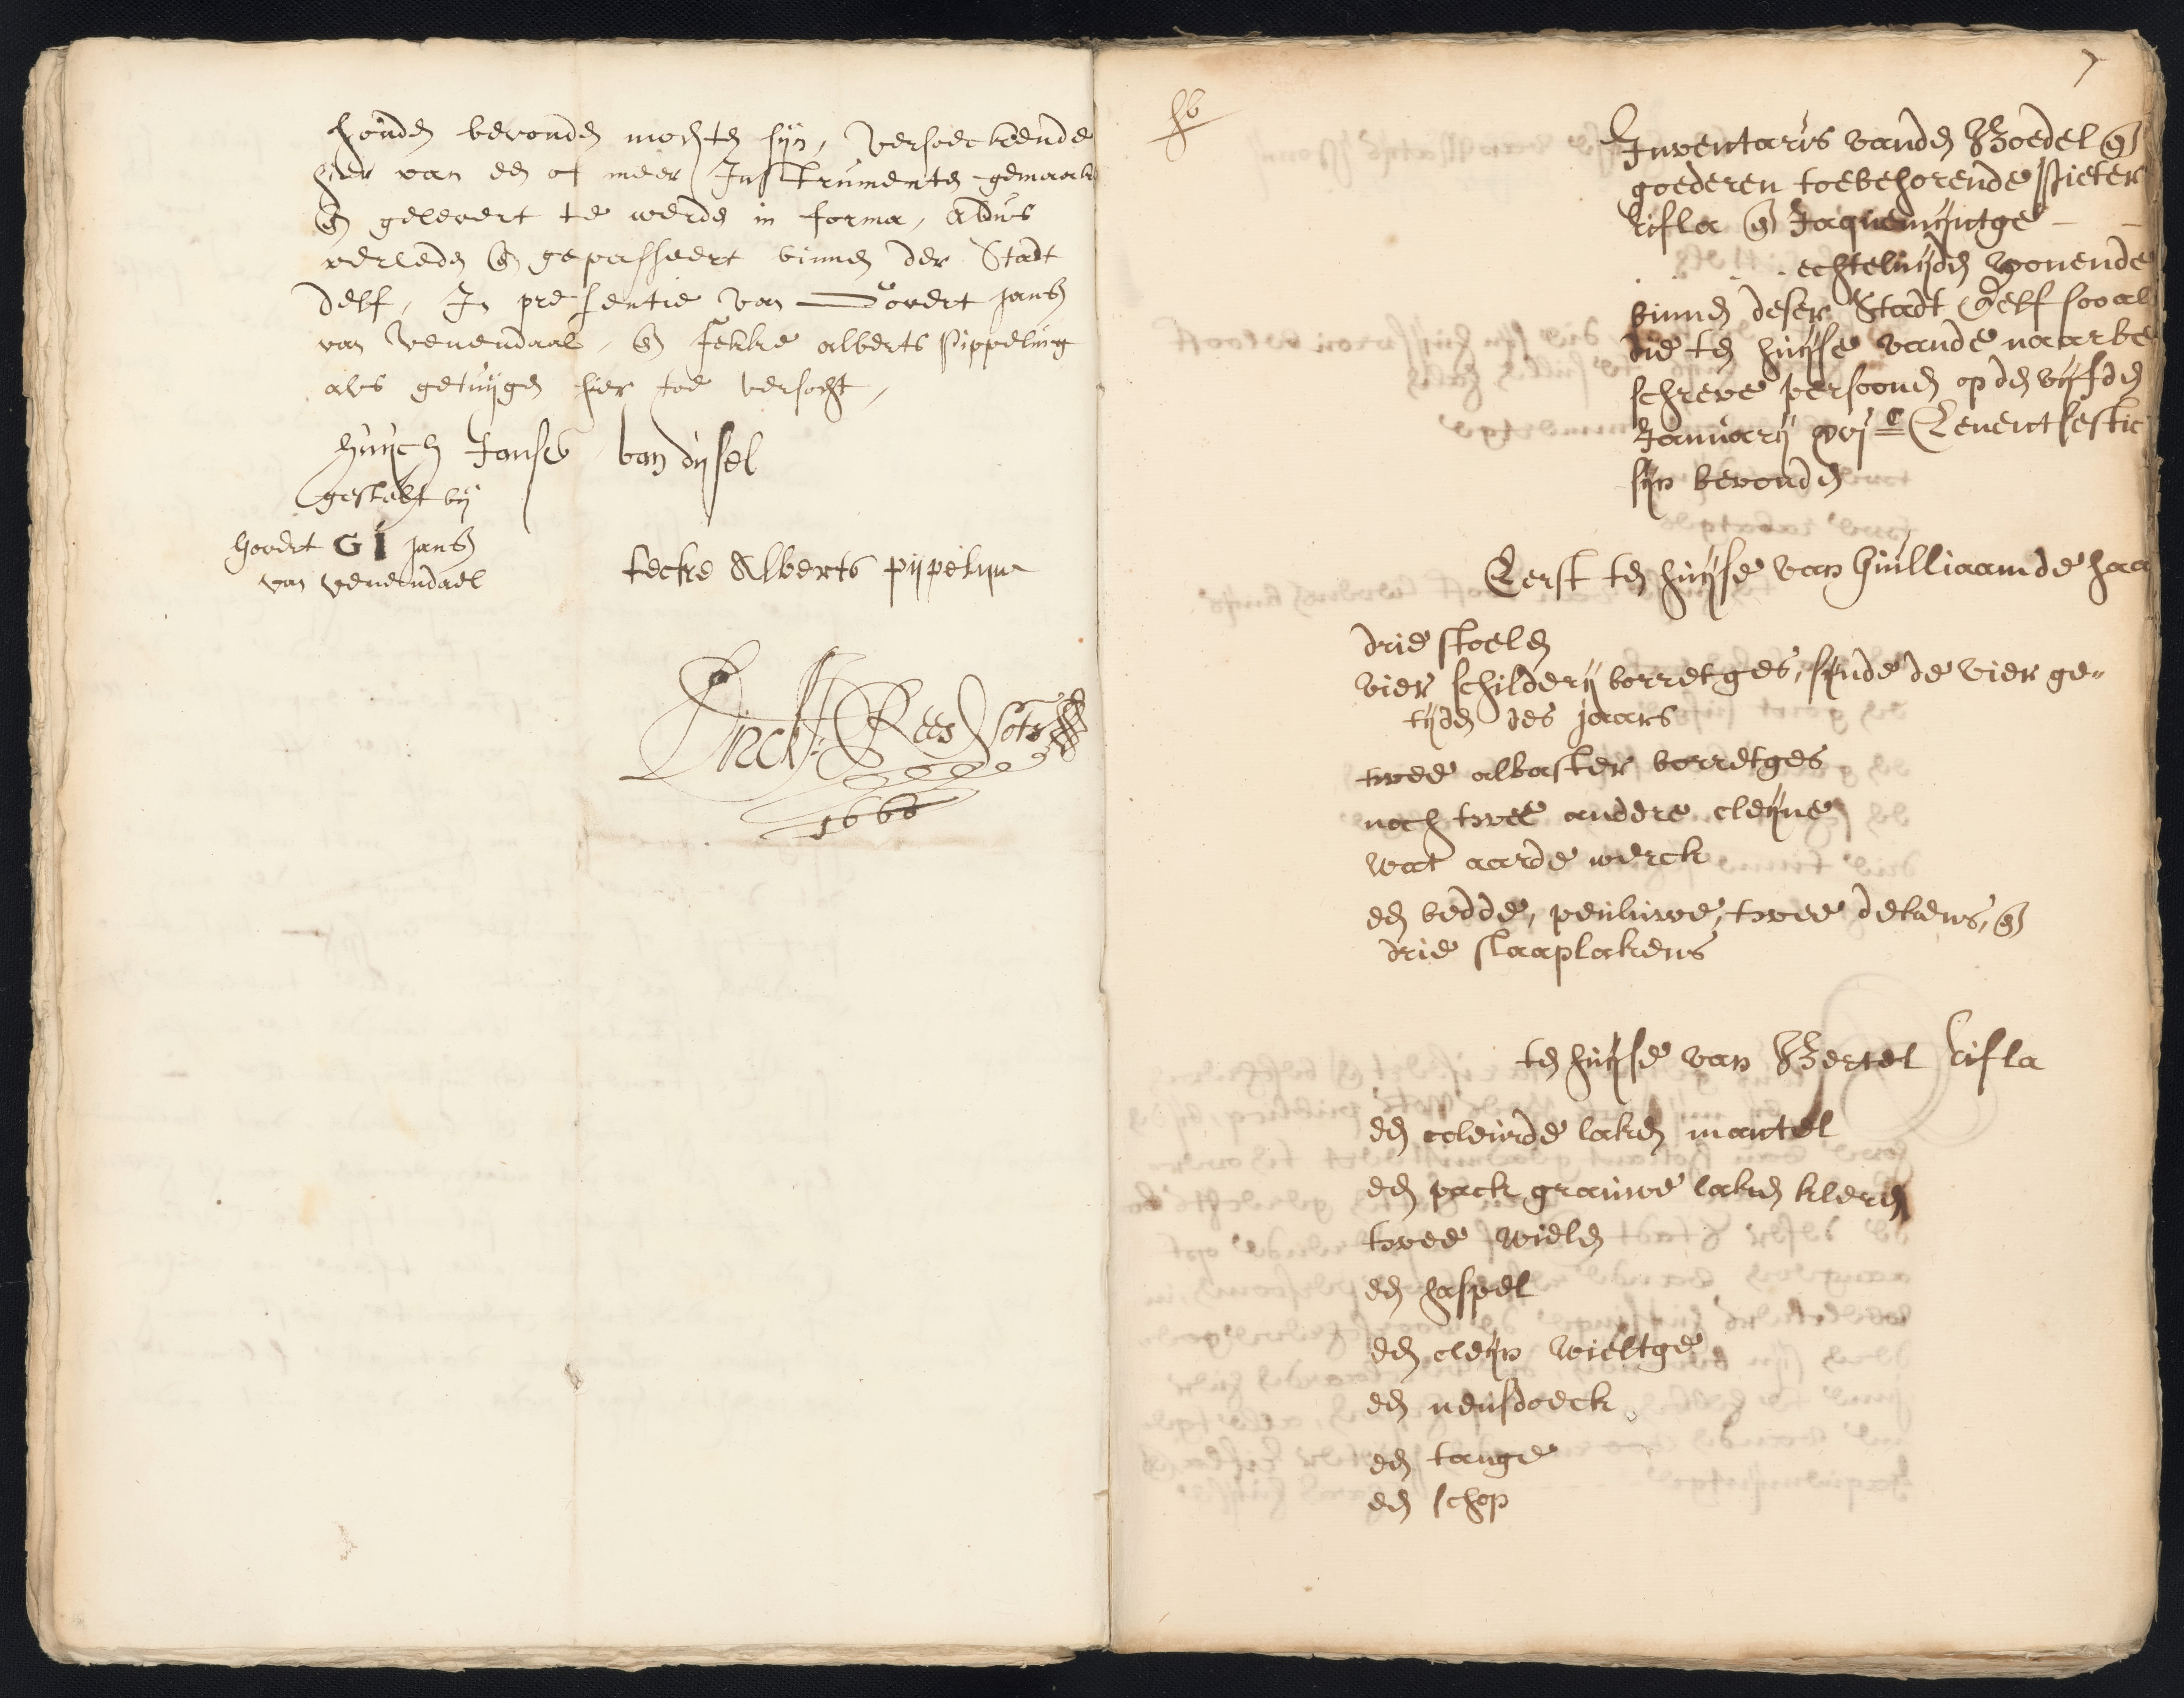 honden bevonden mochten sijn, versoeckende
hier van een of meer Instrumenten gemaakt
en gelevert te werde in forma, Aldus
verleden en gepasseert binnen der Stadt
Delf, In presentie van Govert Jans
van Venendaal, en Fekke alberts Pippeling
als getuijgen hier toe versocht,
Huijch Jansz van dijsel
gestelt bij
Govert GI Jans
van venendael
feckre Alberts pijpelijn
Dirck Rees Nots
1666
7
Inventaris vanden Boedel en
goederen toebehorende Pieter
Rifla en Jaquemijntge -
echteluijden wonende
binnen deser Stadt Delf soo als
die ten huijse vande naarbe
schreve persoonen op den vijfden
January xvj c Eenentsestich
sijn bevonden
Eerst ten huijse van Guilliaam de haa
drie stoelen
vier schilderij borretges, sijnde de vier ge-
tijden des jaars
twee albaster borretges
noch twee andere cleijne
wat aarde werck
een bedde, peuluwe, twee dekens, en
drie slaaplakens
ten huijse van Bertel Rifla
een coleurde laken mantel
een pack grauwe laken kleren
twee wielen
een haspel
een cleijn wieltge
een neusdoeck
een tange
een schop